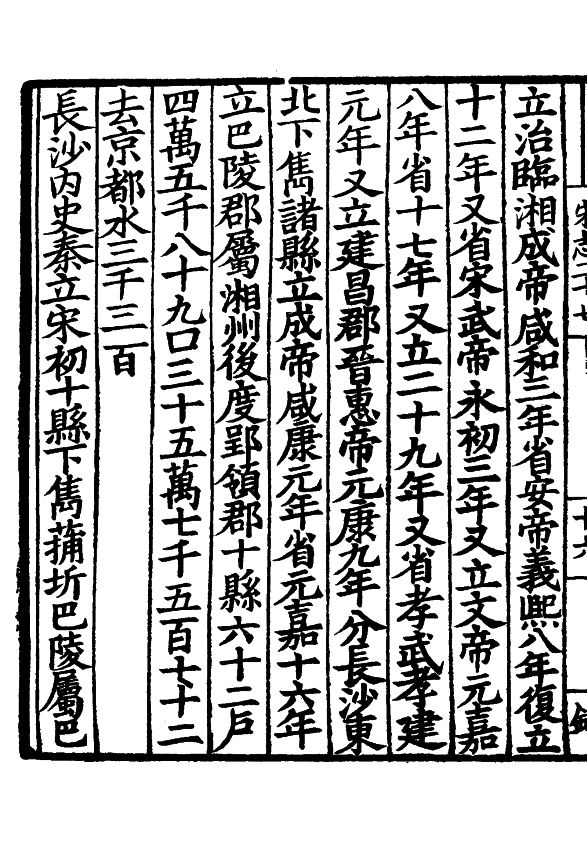 立治臨湘成帝咸和三年省安帝義熙八年復立
十二年又省宋武帝永初三年又立文帝元嘉
八年省十七年又立二十九年又省孝武孝建
元年又立建昌郡晉惠帝元康九年分長沙東
北下雋諸縣立成帝咸康元年省元嘉十六年
立巴陵郡屬湘州後度郢領郡十縣六十二戶
四萬五千八十九口三十五萬七千五百七十二
去京都水三千三百
長沙内史秦立宋初十縣下雋蒲圻巴陵屬巴